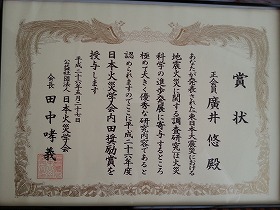 賞状
正会員 廣井 悠 殿
あなたが発表された東日本大震災における
地震火災に関する調査研究は火災
科学の進歩発展に寄与するところ
極めて大きく優秀な研究内容であると
認められますのでここに平成二十六年度
日本火災学会内田奨励賞を
授与します
平成二十六年五月二十七日
公益社団法人 日本火災学会
会長 田中哮義